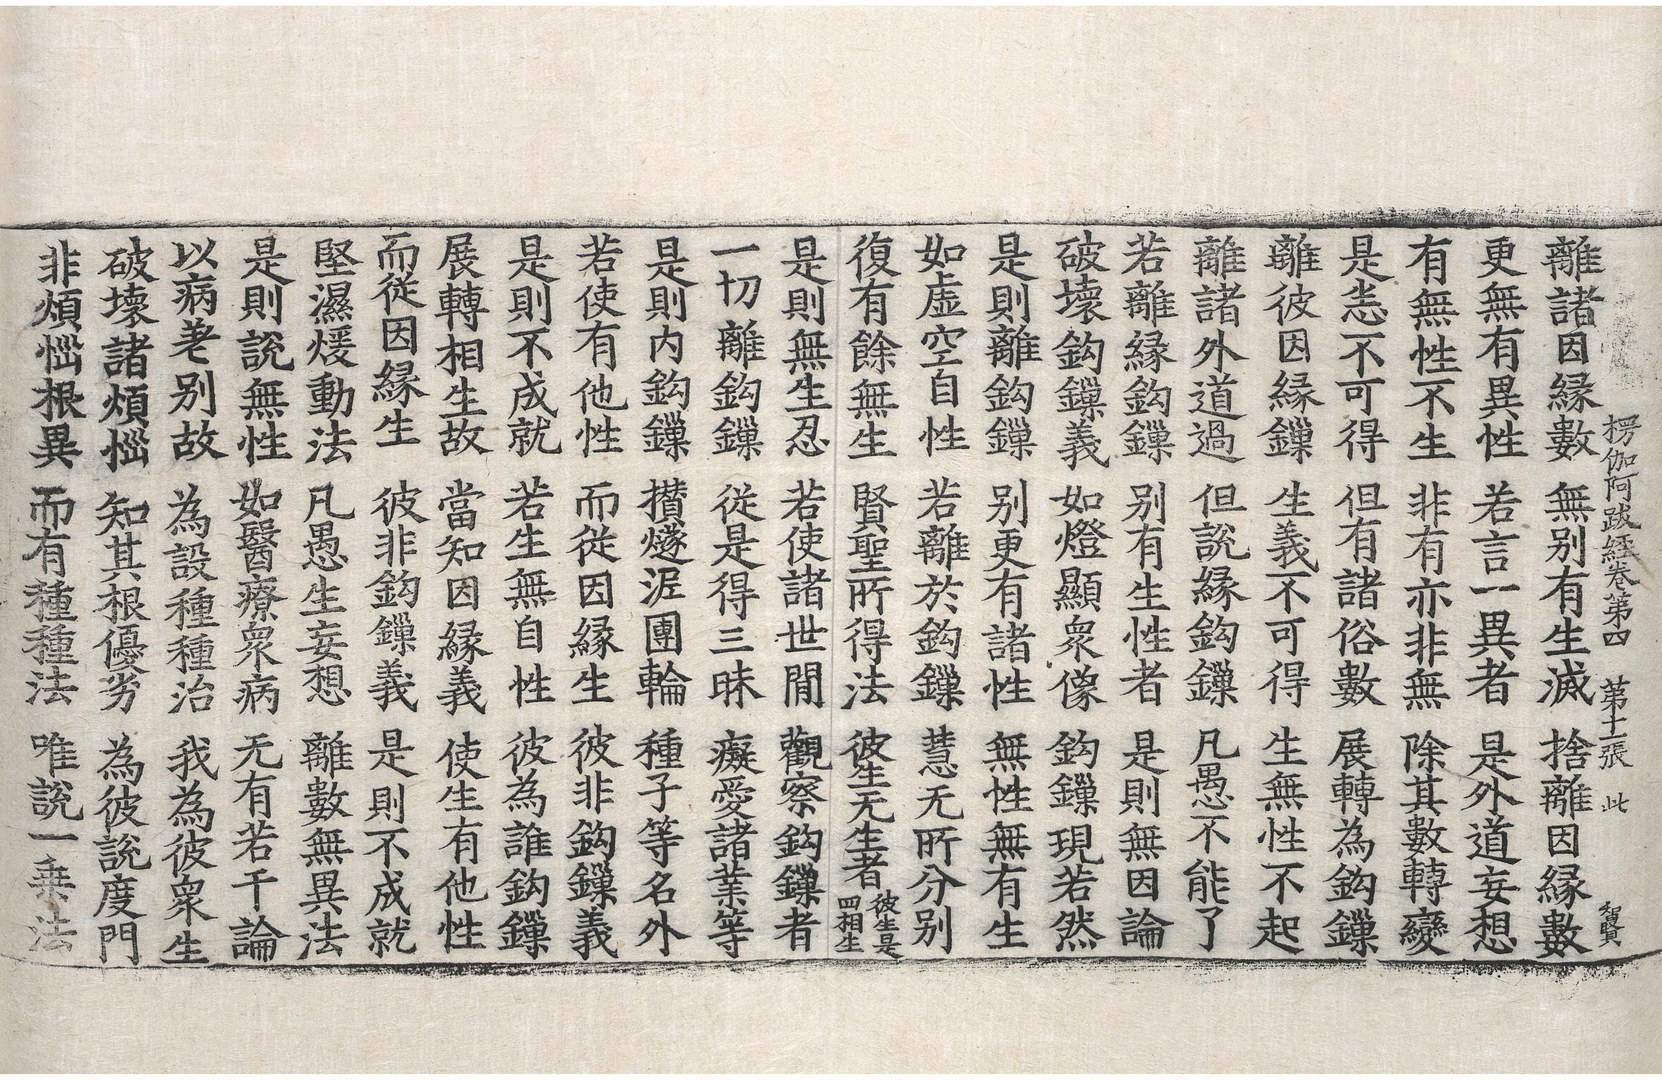 楞伽阿跋經卷第四　第十二張　此　智賢
離諸因緣數　無別有生滅　捨離因緣數
更無有異性　若言一異者　是外道妄想
有無性不生　非有亦非無　除其數轉變
是悉不可得　但有諸俗數　展轉為鉤鏁
離彼因緣鏁　生義不可得　生無性不起
離諸外道過　但說緣鉤鏁　凡愚不能了
若離緣鉤鏁　別有生性者　是則無因論
破壞鉤鏁義　如燈顯衆像　鉤鏁現若然
是則離鉤鏁　別更有諸性　無性無有生
如虛空自性　若離於鉤鏁　慧无所分別
復有餘無生　賢聖所得法　彼生无生者彼生是四相生
是則無生忍　若使諸世間　觀察鉤鏁者
一切離鉤鏁　從是得三昧　癡愛諸業等
是則內鉤鏁　攢燧泥團輪　種子等名外
若使有他性　而從因緣生　彼非鉤鏁義
是則不成就　若生無自性　彼為誰鉤鏁
展轉相生故　當知因緣義　使生有他性
而從因緣生　彼非鉤鏁義　是則不成就
堅濕煖動法　凡愚生妄想　離數無異法
是則說無性　如醫療衆病　无有若干論
以病差別故　為設種種治　我為彼衆生
破壞諸煩惱　知其根優劣　為彼說度門
非煩惱根異　而有種種法　唯說一乗法